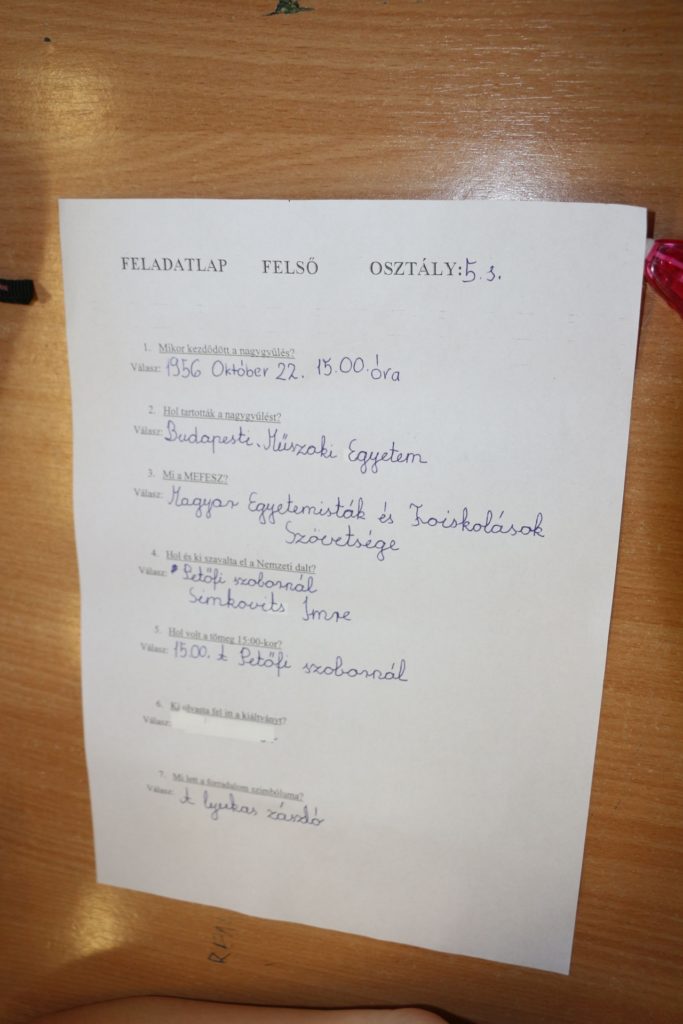 FELADATLAP FELSŐ OSZTÁLY:5.s.
1. Mikor kezdődött a nagygyűlés?
Válasz: 1956 Október 22. 15.00.óra
2. Hol tartották a nagygyűlést?
Válasz: Budapesti. Műszaki Egyetem
3. Mi a MEFESZ?
Válasz: Magyar Egyetemisták és Foiskolások
Szövetsége
4. Hol és ki szavalta el a Nemzeti dalt?
Válasz: Petőfi szobornál
Simkovits Imre
5. Hol volt a tömeg 15:00-kor?
Válasz: 15.00. A Petőfi szobornál
6. Ki olvasta fel itt a kiáltványt?
Válasz:
7. Mi lett a forradalom szimbóluma?
Válasz: A lyukas zászló